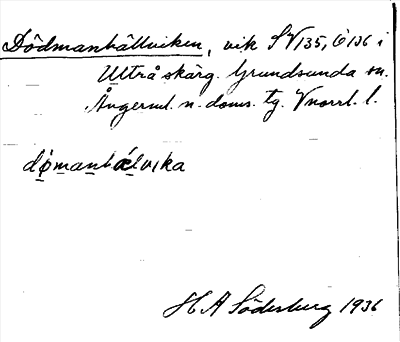 Dödmanhällviken, vik SV135, Ö136 i
Ultrå skärg. Grundsunda sn.
Ångerml. n. doms. tg. Vnorrl. l.
dømanhælvika
H A Söderberg 1936